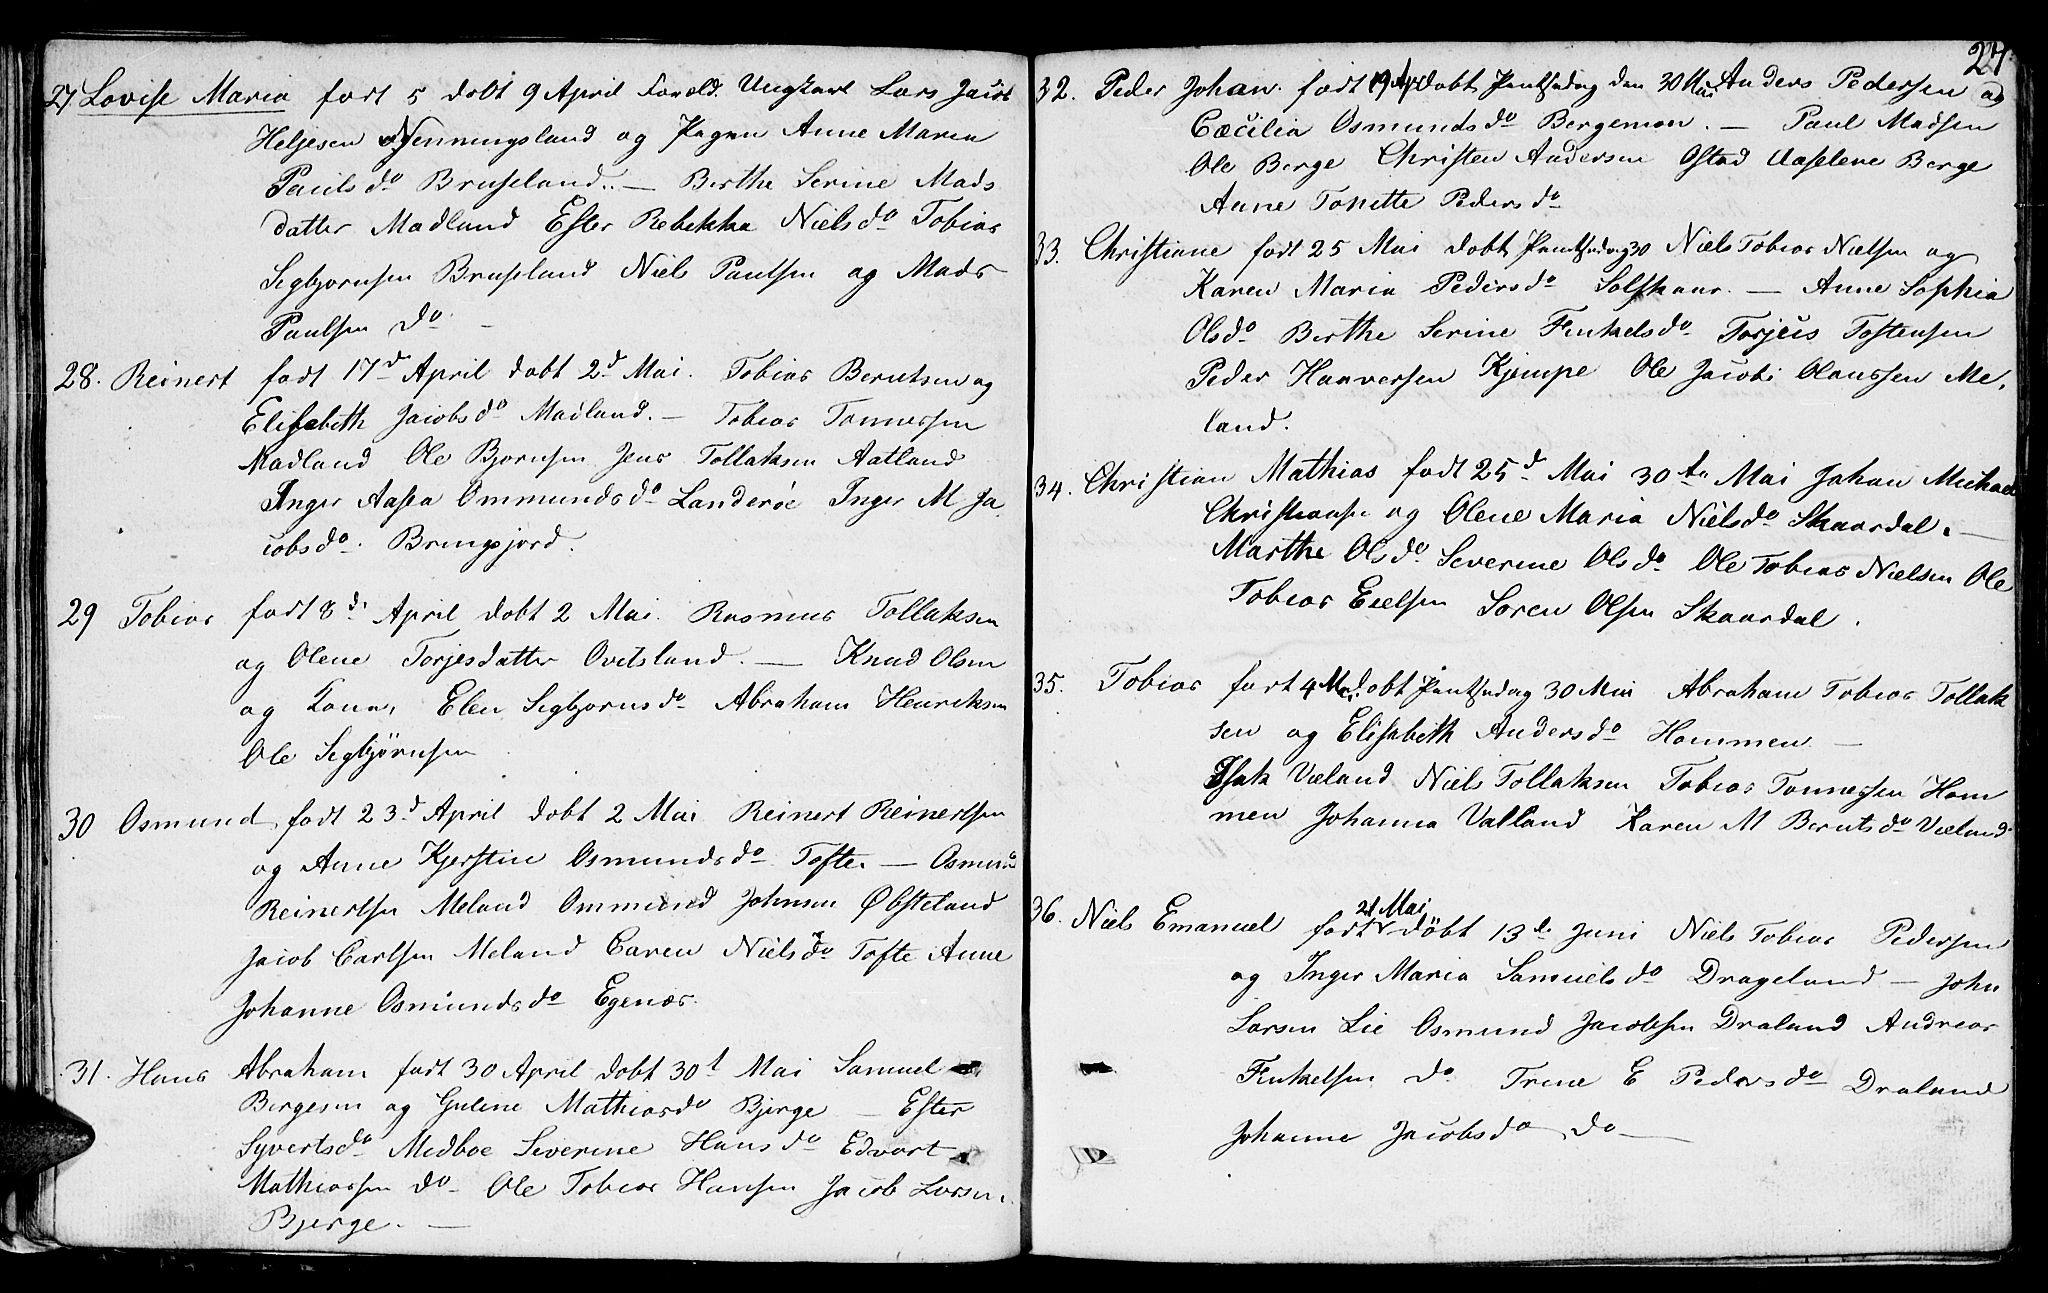 27 Lovise Maria født 5 døbt 9 April Foreld. Ungkarl Lars Jacob
Heljesen Nenningsland og Pigen Anne Maria
Pauls do Bruseland. — Berthe Serine Mads
datter Madland Ester Rebekka Niels do Tobias
Segbjørnsen Bruseland Niels Paulsen og Mads
Paulsen do —
28. Reinert født 17d April døbt 2d Mai. Tobias Berntsen og
Elisabeth Jacobs do Madland. — Tobias Tønnessen
Madland Ole Bjørnsen Jens Tollaksen Aatland
Inger Aasea Ommunds do Landerøe Inger M Ja
cobs do. Bringsjord.
29 Tobias født 8d. April døbt 2 Mai. Rasmus Tollaksen
og Olene Torjesdatter Ovetsland. — Knud Olsen
og Elen Segbjørns do Abraham Henriksen
Ole Segbjørnsen
30 Osmund, født 23d April døbt 2 Mai Reinert Reinertsen
og Anne Kjerstine Osmunds do Tofte. — Osmund
Reinertsen Meland Ommund Johnsen Øbsteland
Jacob Carlsen Meland Caren Niels do Tofte Anne
Johanne Osmunds do Egenæs.
31. Hans Abraham født 30 April døbt 30t Mai Samuel
Bergesen og Gulene Mathias do Bjerge — Ester
Syverts do Medboe Severine Hans do Edvart
Mathiassen do — Ole Tobias Hansen Jacob Larsen.
Bjerge. —
27
32. Peder Johan. født 19 Apr døbt Pintsedag den 30 Mai Anders Pedersen og
Cæcilia Osmunds do Bergemon. — Paul Madsen
Ole Berge Christen Andersen Østad Aaselene Berge
Anne Tonette Peders do
33. Christiane født 25 Mai døbt Pintsedag 30 Niels Tobias Nielsen og
Karen Maria Peders do Solskaar. — Anne Sophia
Ols do Berthe Serine Finkels do Torjeus Tostensen
Peder Haaversen Kjempe Ole Jacob Olaussen Me,
land.
34. Christian Mathias født 25d Mai 30te Mai Johan Michael
Christiansen og Olene Maria Niels do Skaardal. —
Marthe Ols do Severine Ols do Ole Tobias Nielsen Ole
Tobias Eielsen Søren Olsen Skaardal.
35. Tobias født 4 Mai døbt Pintsedag 30 Mai Abraham Tobias Tollak
sen og Elisabeth Anders do Hommen —
Isak Væland Niels Tollaksen Tobias Tønnessen Hom
men Johanna Valland Karen M Bernts do Væland.
36. Niels Emanuel født 21 Mai døbt 13de Juni Niels Tobias Pedersen
og Inger Maria Samuels do Drageland — John
Larsen Lie Osmund Jacobsen Draland Andreas
Finkelsen do Trine E Peders do Draland
Johanne Jacobs do do —